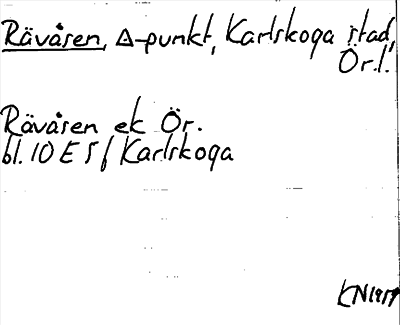 Rävåsen, Δ-punkt, Karlskoga stad,
Ör.l.
Rävåsen ek Ör.
bl. 10 E 5 f Karlskoga